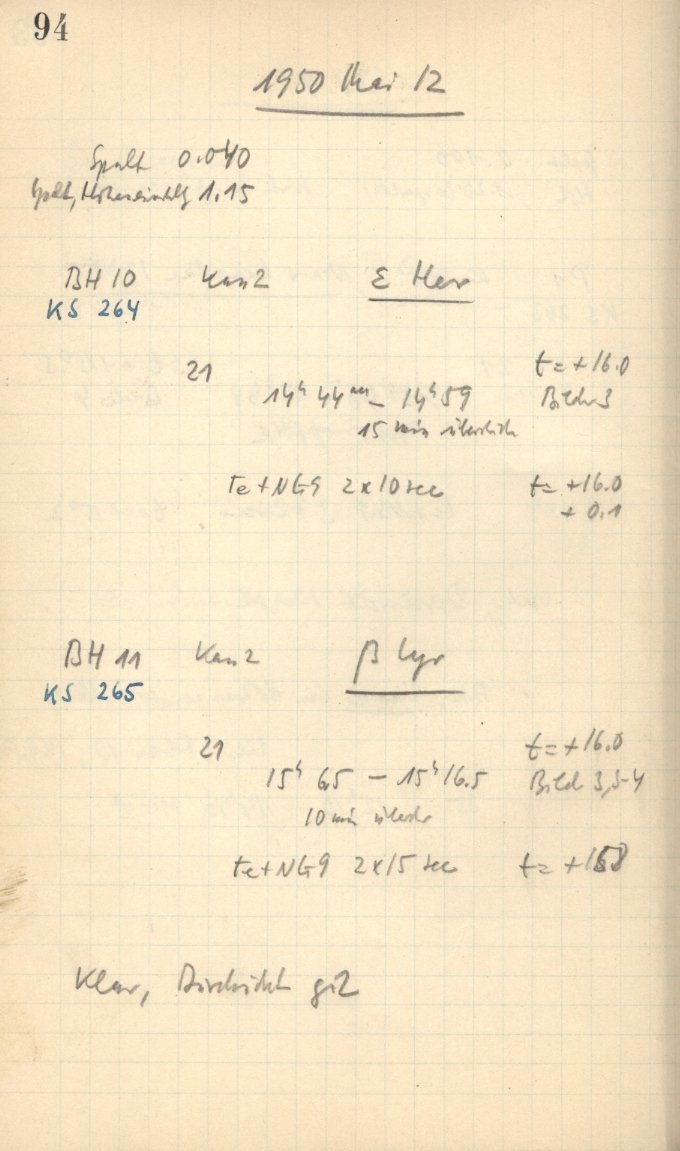 94
1950 Mai 12
Spalt 0.040
Spalt, 1.15
BH 10 Kan 2 ε Her
KS 264
21 t = +16.0
14h 44m – 14h 59 Bild 3
15 min überbel
Fe + NG9 2x10 sec t = +16.0
+ 0.1
BH 11 Kan 2 β Lyr
KS 265
21 t = +16.0
15h 6.5 – 15h 16.5 Bild 3,5-4
10 min überbel
Fe + NG9 2x15 sec t = +15.8
Klar, Durchsicht g:2